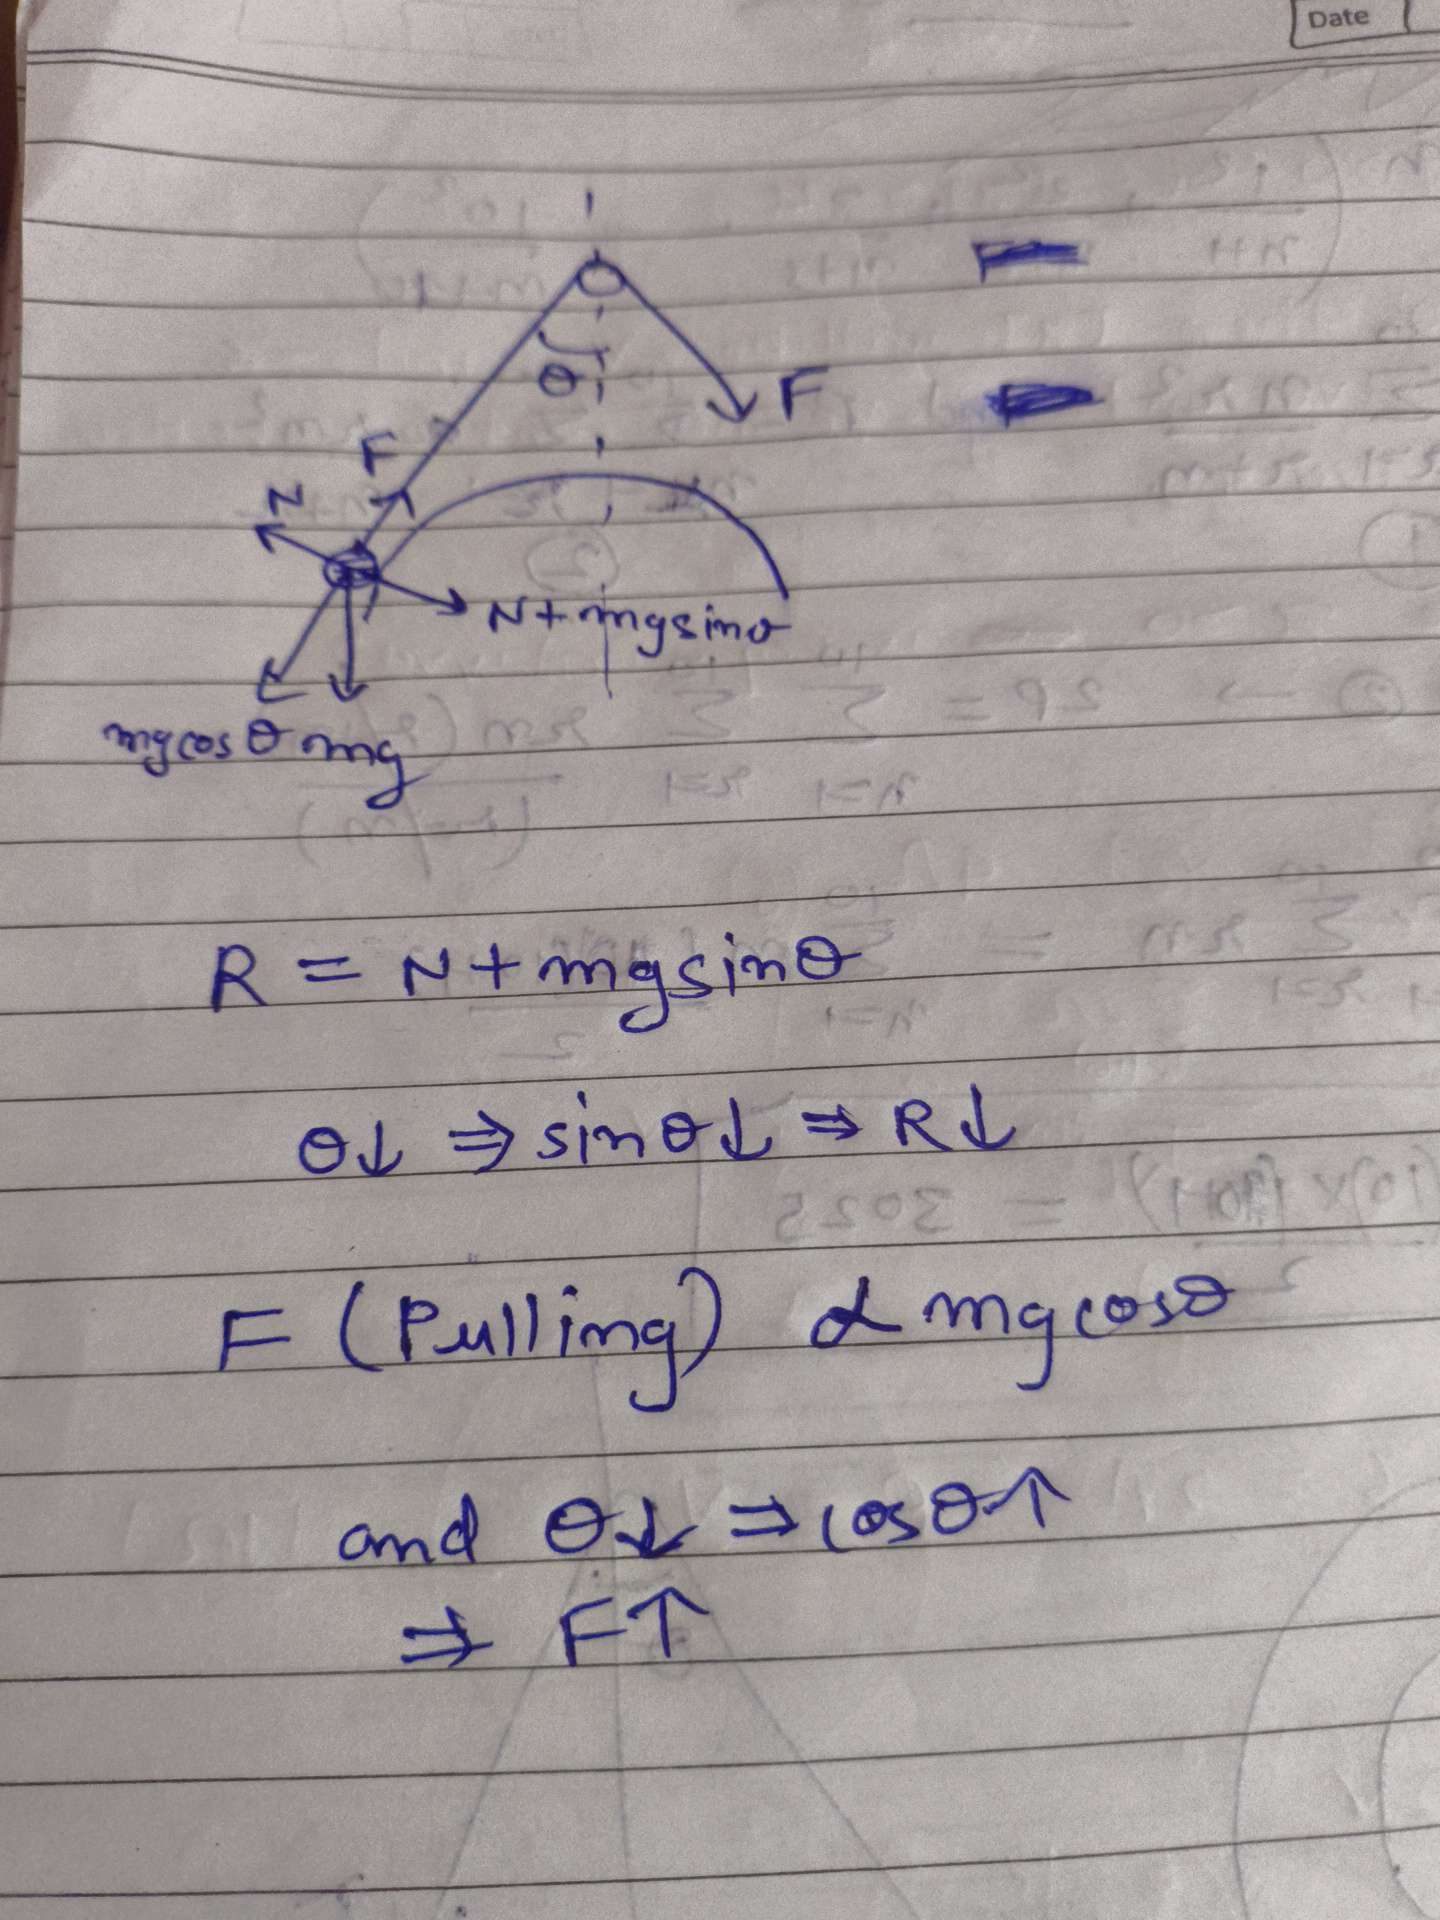 Date
θ
F
F
N
N+mgsinθ
mgcosθ mg
R = N+mgsinθ
θ↓ ⇒ sinθ↓ ⇒ R↓
F (Pulling) α mgcosθ
and θ↓ ⇒ cosθ↑
⇒ F↑